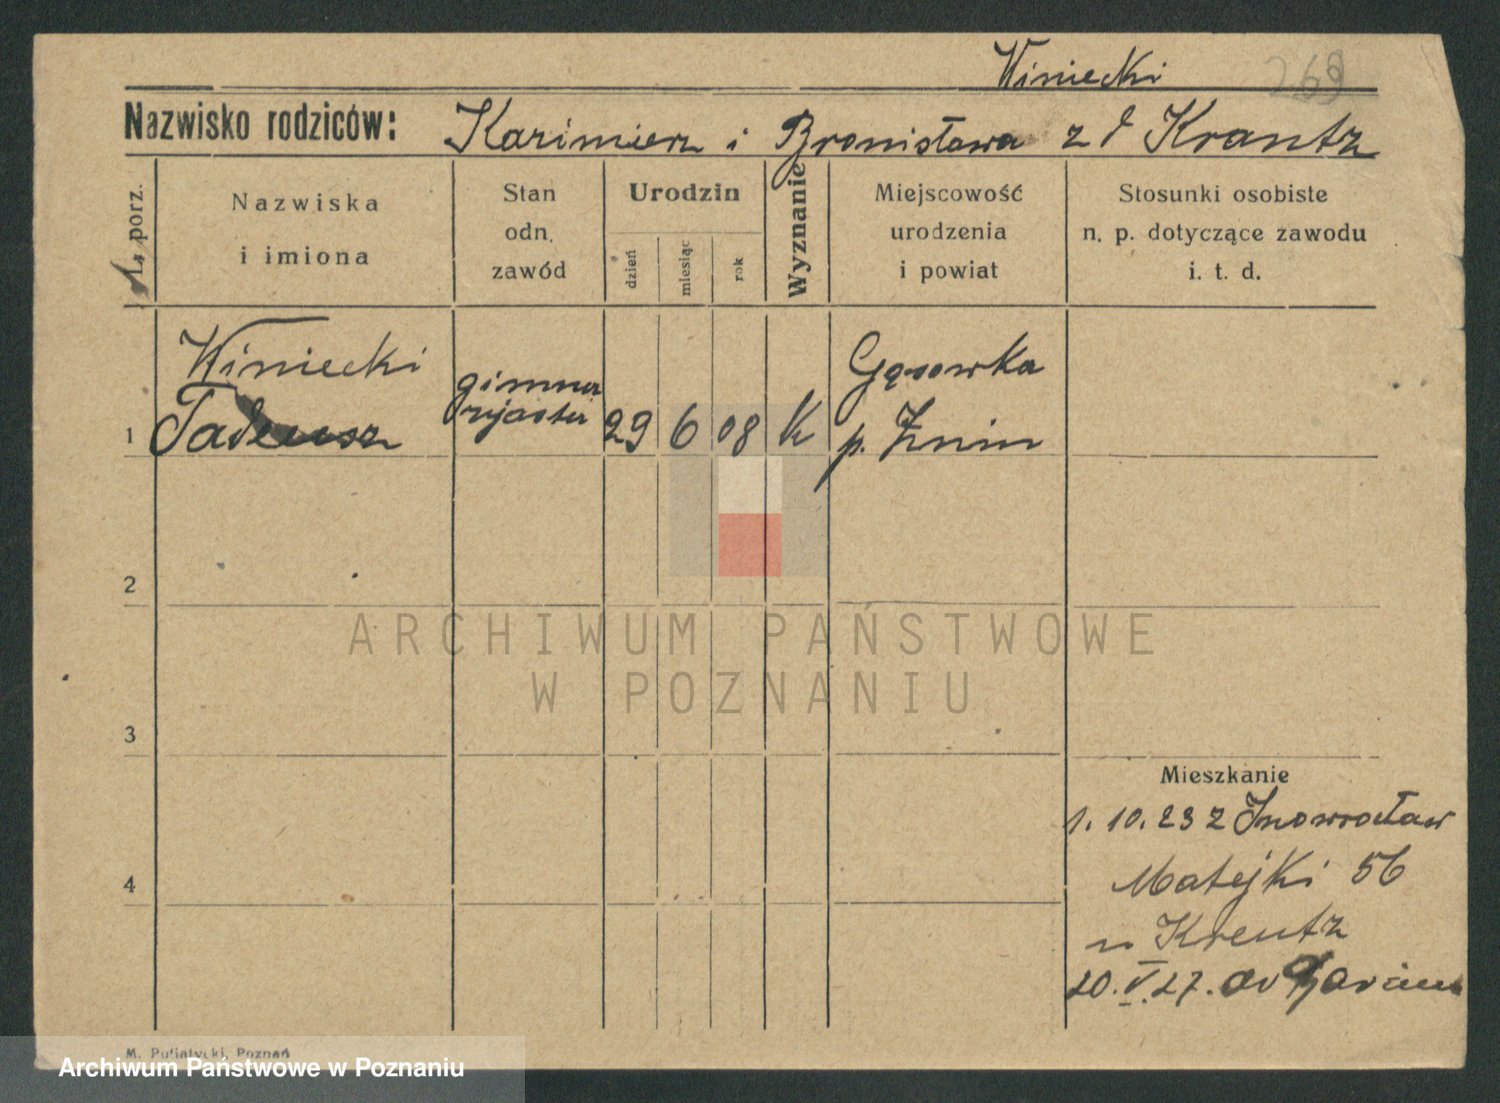 Winiecki 269
Nazwisko rodziców: Kazimierz i Bronisława z d Krantz
L. porz.
Nazwiska
i imiona
Stan
odn.
zawód
Urodzin
dzień
miesiąc
rok
Wyznanie
Miejscowość
urodzenia
i powiat
Stosunki osobiste
n. p. dotyczące zawodu
i. t. d.
1
Winiecki
Tadeusz
gimna
zyasta
29 6 08 K
Gąsawka
p. Żnin
2
3
4
ARCHIWUM PAŃSTWOWE
W POZNANIU
Mieszkanie
1. 10. 23 z Inowrocław
Matejki 56
u Krentz
20. V. 27. do
M. Putiatycki, Poznań
Archiwum Państwowe w Poznaniu